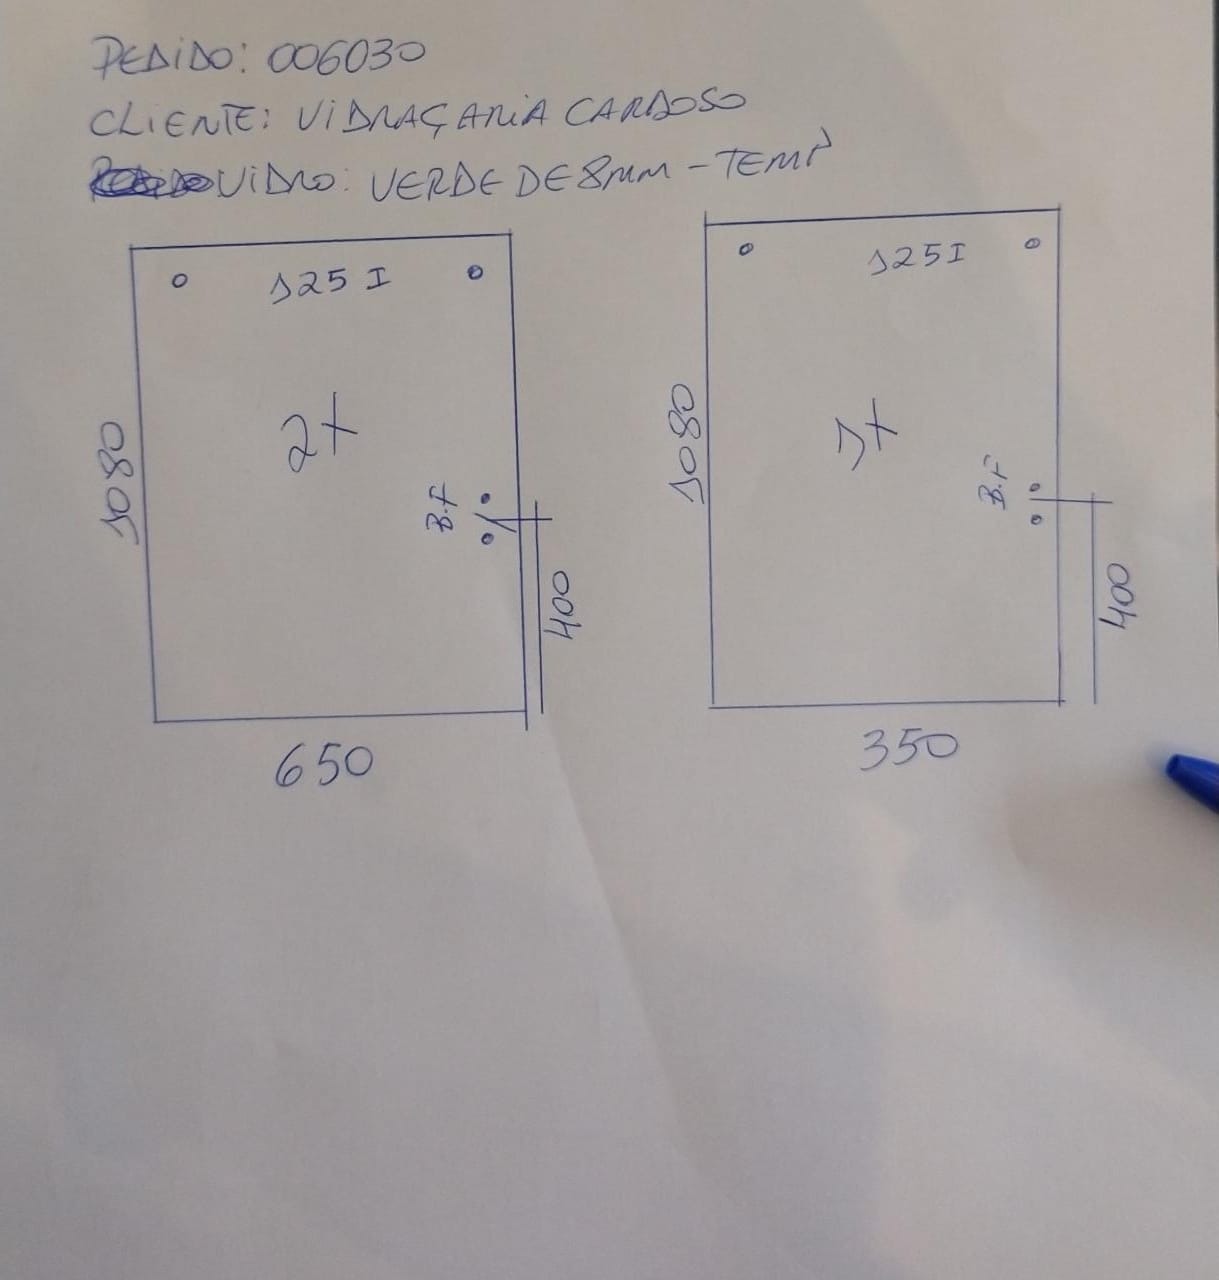 PEDIDO: 006030
CLIENTE: VIDRAÇARIA CARDOSO
VIDRO: VERDE DE 8mm - TEMP
125 I
2x
1080
B.F
400
650
125 I
1x
1080
B.F
400
350